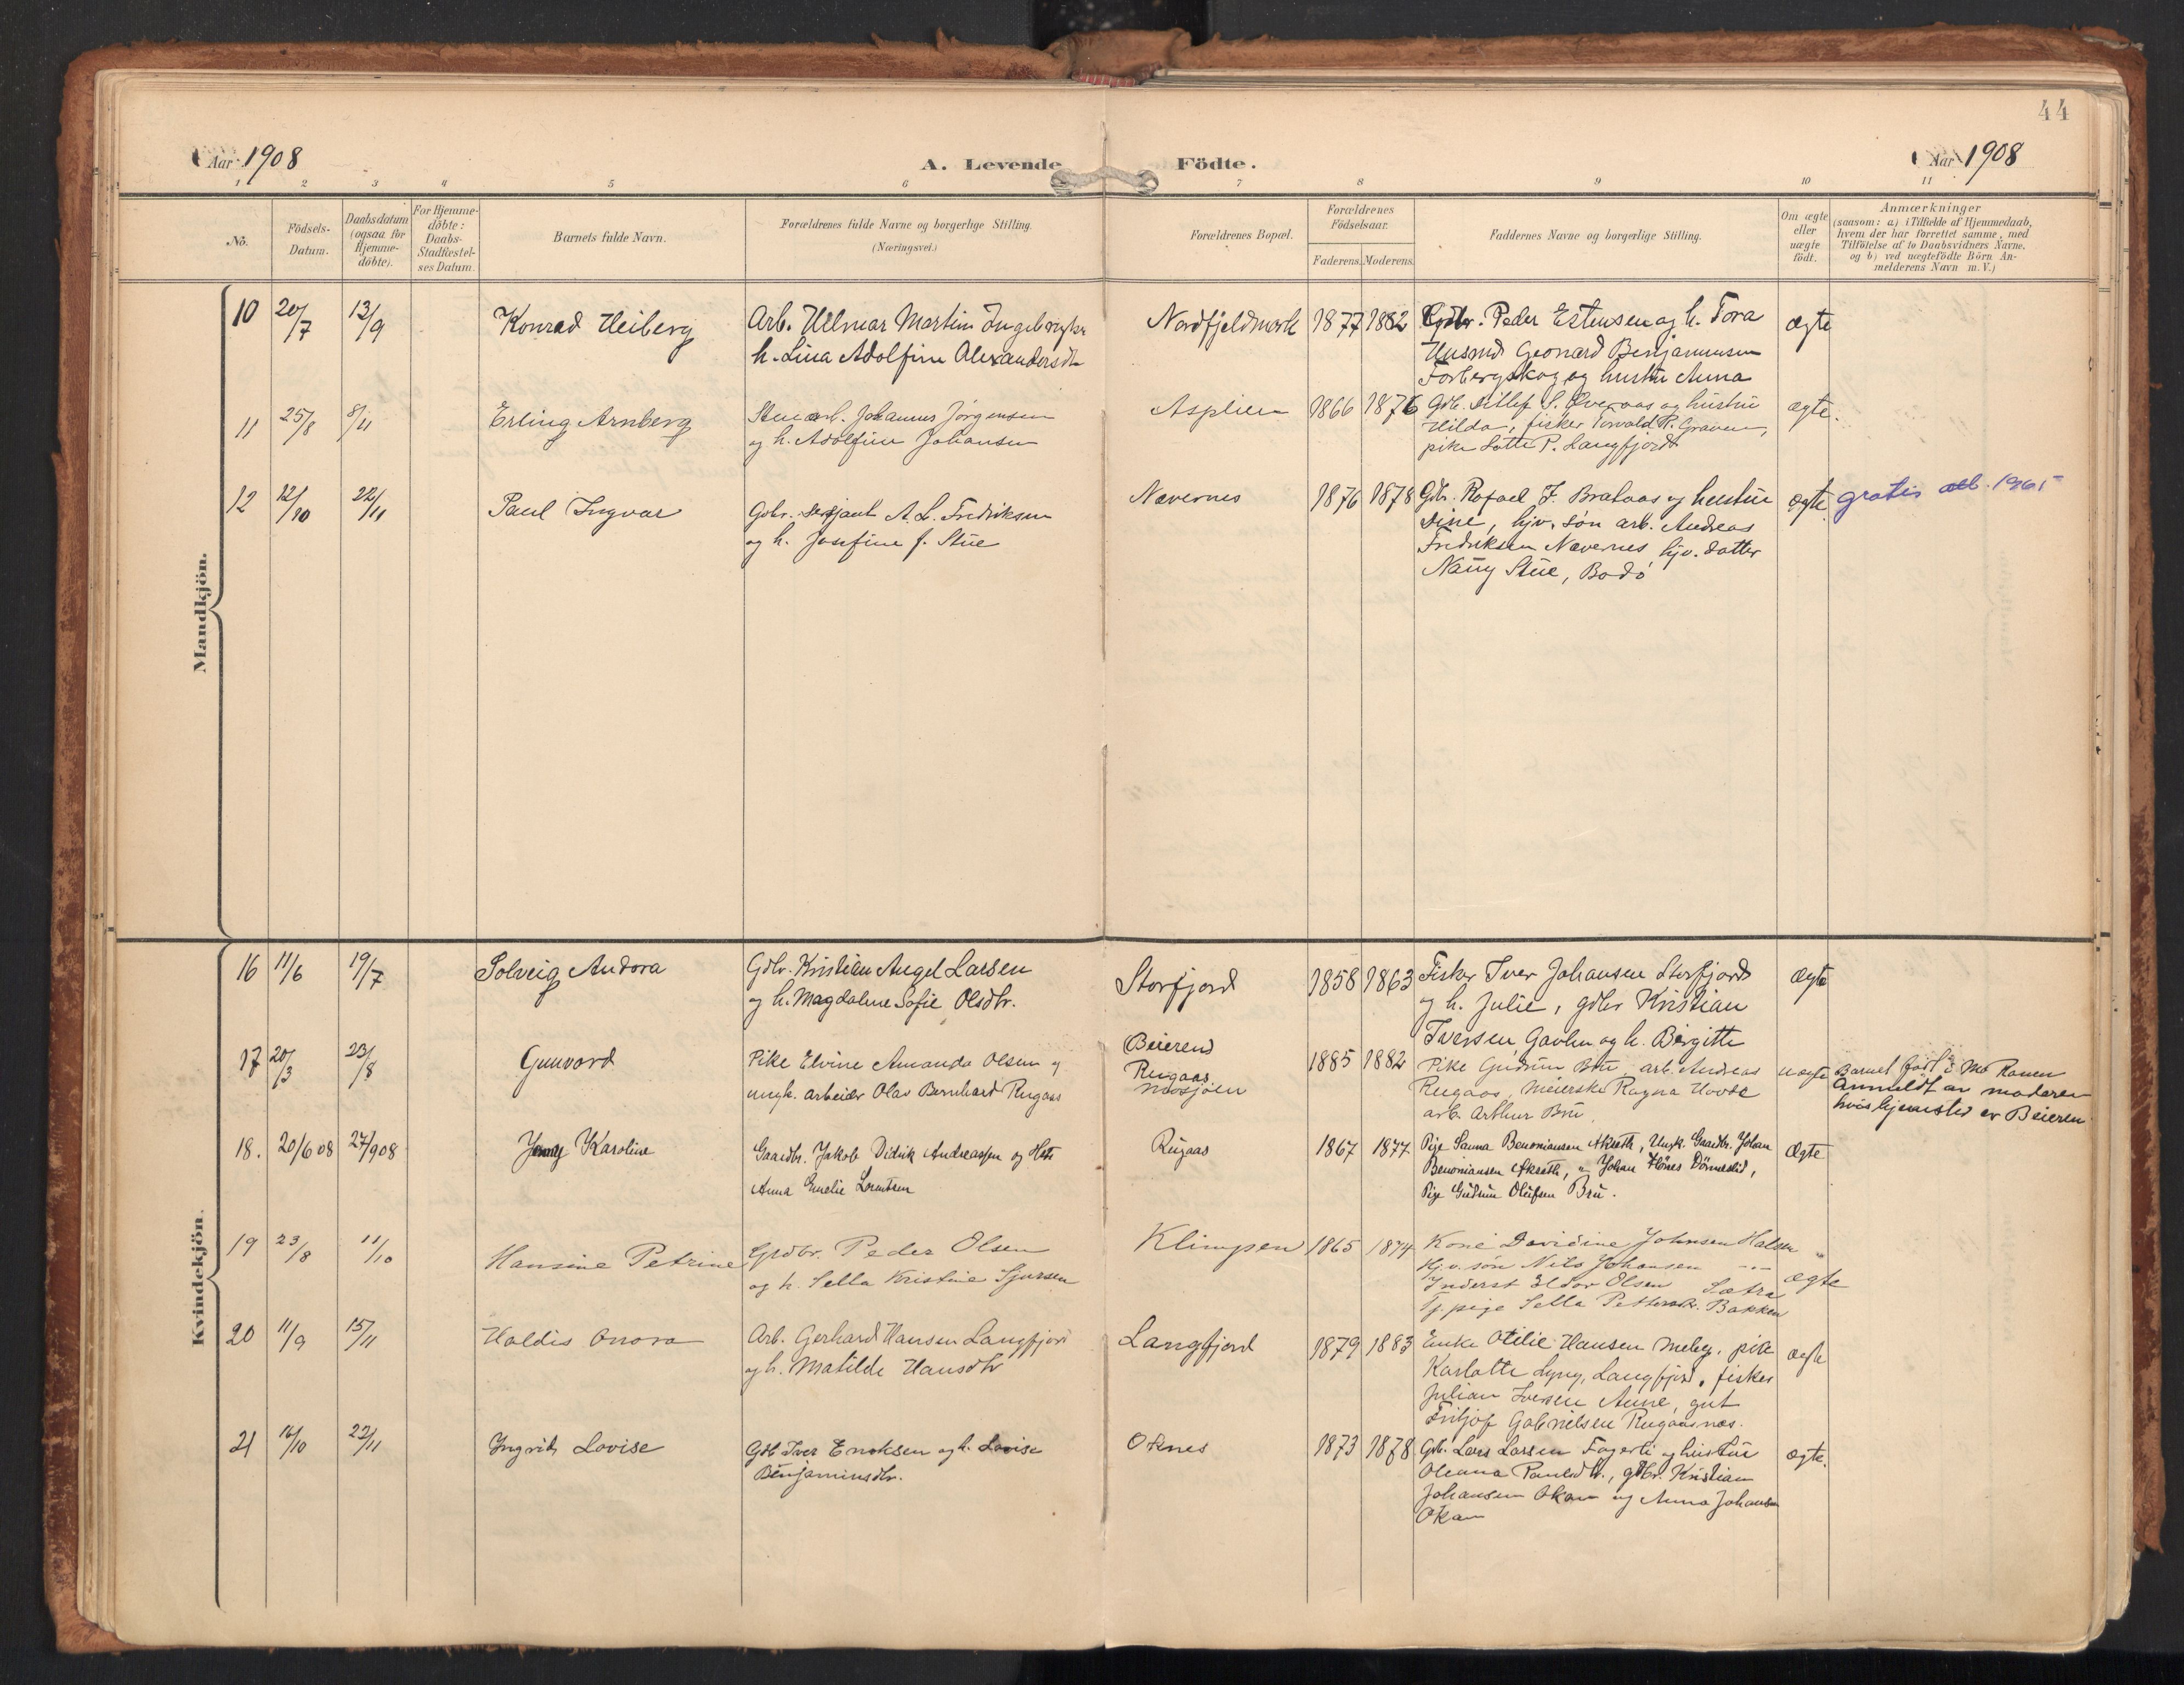 44
Aar 1908
A. Levende Födte.
Aar 1908
1 2 3 4 5 6 7 8 9 10 11
No.
Födsels-
Datum.
Daabsdatum
(ogsaa for
Hjemme-
döbte).
For Hjemme-
döbte:
Daabs-
Stadfæstel-
ses Datum.
Barnets fulde Navn.
Forældrenes fulde Navne og borgerlige Stilling.
(Næringsvei.)
Forældrenes Bopæl.
Forældrenes
Födselsaar.
Faderens. Moderens.
Faddernes Navne og borgerlige Stilling.
Om ægte
eller
uægte
födt.
Anmærkninger
(saasom: a) i Tilfælde af Hjemmedaab,
hvem der har forrettet samme, med
Tilföielse af to Daabsvidners Navne,
og b) ved uægtefödte Börn An-
melderens Navn m. V.)
Mandkjön.
10 20/7 13/9 Konrad Heiberg
Arb. Hilmar Martin
h. Lina Adolfine Alexandersdtr
Nordfjeldmark 1877 1882
Gdbr. Peder Estensen og h. Tora
Husmd Geonard Benjaminsen
Forbergskog og hustru Anna
ægte
11 25/8 8/11 Erling Arnberg
Stenarb. Johannes Jørgensen
og h. Adolfine Johansen
Asplien 1866 1876
Gdb. Detlef S. Øveraas og hustru
Hilda, fisker Torvald R. Graven,
pike Lotte P. Langfjord
ægte.
12 12/10 22/11 Paul Ingvar
Gdbr. Sersjant A. L. Fredriksen
og h. Josefine f. Stue
Nævernes 1876 1878
Gdbr. Rafael J. Brataas og hustru
Sine, hjv. søn arb. Andreas
Fredriksen Nævernes, hjv. datter
Nanny Stue, Bodö
ægte.
gratis att. 1965
Kvindekjön.
16 11/6 19/7 Solveig Andora
Gdbr. Kristian Angel Larsen
og h. Magdalene Sofie Olsdtr.
Storfjord 1858 1863
Fisker Iver Johansen Storfjord
og h. Julie, gdbr Kristian
Iversen Gavlen og h. Birgitte
ægte
17 20/3 23/8 Gunvord
Pike Elvine Amanda Olsen og
ungk. arbeider Olav Bernhard Rugaas
Beieren
Rugaas
Mosjøen
1885 1882
Pike Gudrun Bru, arb. Andreas
Rugaas, Meierske Ragna
arb. Arthur Bru
uægte
Barnet født i Mo Ranen
Anmeldt av moderen
hvis hjemsted er Beieren.
18. 20/6 08 27/9 08 Jenny Karoline
Gaardbr. Jakob Didrik Andreassen og Hstr
Anna Emelie Lorentsen
Rugaas 1867 1877
Pige Sanna Benoniansen Akseth, Ungk. Gaardbr. Johan
Benoniansen Akseth, " Johan
Pige Gudrun Olufsen Bru.
Ægte
19 23/8 11/10 Hansine Petrine
Grdbr. Peder Olsen
og h. Sella Kristine Sjursen
Klimpen 1865 1874
Kone Davidine Johnsen Halsen
Hj.v. søn Nils Johansen --
Inderst Eldor Olsen Sætra
Tj. pige Sella Bakken
ægte
20 11/9 15/11 Haldis Onora
Arb. Gerhard Hansen Langfjord
og h. Matilde Hansdtr
Langfjord 1879 1883
Enke Otilie Hansen, pike
Karlotte Lyng, Langfjord, fisker
Julian Iversen Aune, gut
Fritjof Gabrielsen Rugaasnæs.
ægte
21 16/10 22/11 Ingrid Lovise
Gdb Iver Enoksen og h. Lovise
Benjaminsdtr.
Osnes 1873 1878
Gdb. Lars Larsen Fagerli og hustru
Oleana Paulsdtr., gdbr. Kristian
Johansen Okan og Anna Johansen
Okan
ægte.